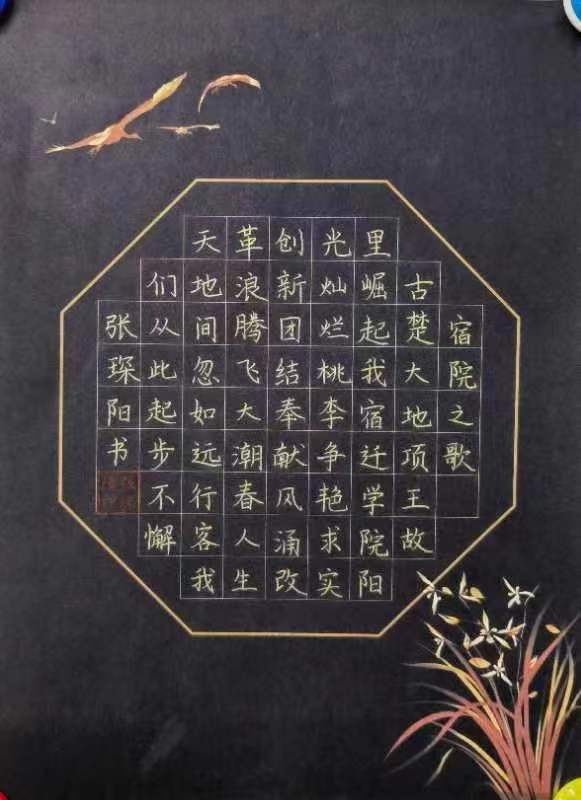 宿院之歌
古楚大地项王故
里崛起我宿迁学院阳
光灿烂桃李争艳求实
创新团结奉献风涌改
革浪腾飞大潮春人生
天地间忽如远行客我
们从此起步不懈
张琛阳书